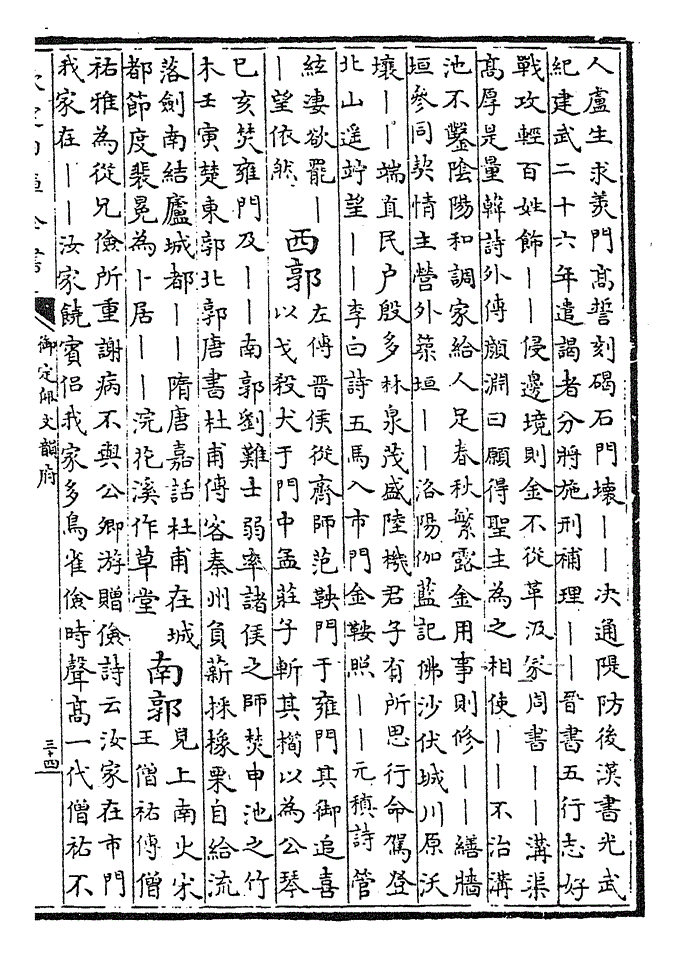 人盧生求羨門高誓刻碣石門壞｜｜决通隄防後漢書光武
紀建武二十六年遣謁者分將施刑補理｜｜晉書五行志好
戰攻輕百姓飾｜｜侵邊境則金不從革汲冢周書｜｜溝渠
高厚是量韓詩外傳顏淵曰願得聖主為之相使｜｜不治溝
池不鑿陰陽和調家給人足春秋繁露金用事則修｜｜繕牆
垣參同契情主營外築垣｜｜洛陽伽藍記佛沙伏城川原沃
壤｜｜端直民户殷多林泉茂盛陸機君子有所思行命駕登
北山遥竚望｜｜李白詩五馬入市門金鞍照｜｜元稹詩管
絃凄欲罷｜
｜望依然
西郭
左傳晉侯從齊師范鞅門于雍門其御追喜
以戈殺犬于門中孟莊子斬其橁以為公琴
己亥焚雍門及｜｜南郭劉難士弱率諸侯之師焚申池之竹
木壬寅焚東郭北郭唐書杜甫傳客秦州負薪採橡栗自給流
落劍南結廬城都｜｜隋唐嘉話杜甫在城
都節度裴冕為卜居｜｜浣花溪作草堂
南郭
見上南火宋
王僧祐傳僧
祐雅為從兄儉所重謝病不與公卿游贈儉詩云汝家在市門
我家在｜｜汝家饒賓侣我家多鳥雀儉時聲高一代僧祐不
欽定四庫全書
御定佩文韻府
三十四